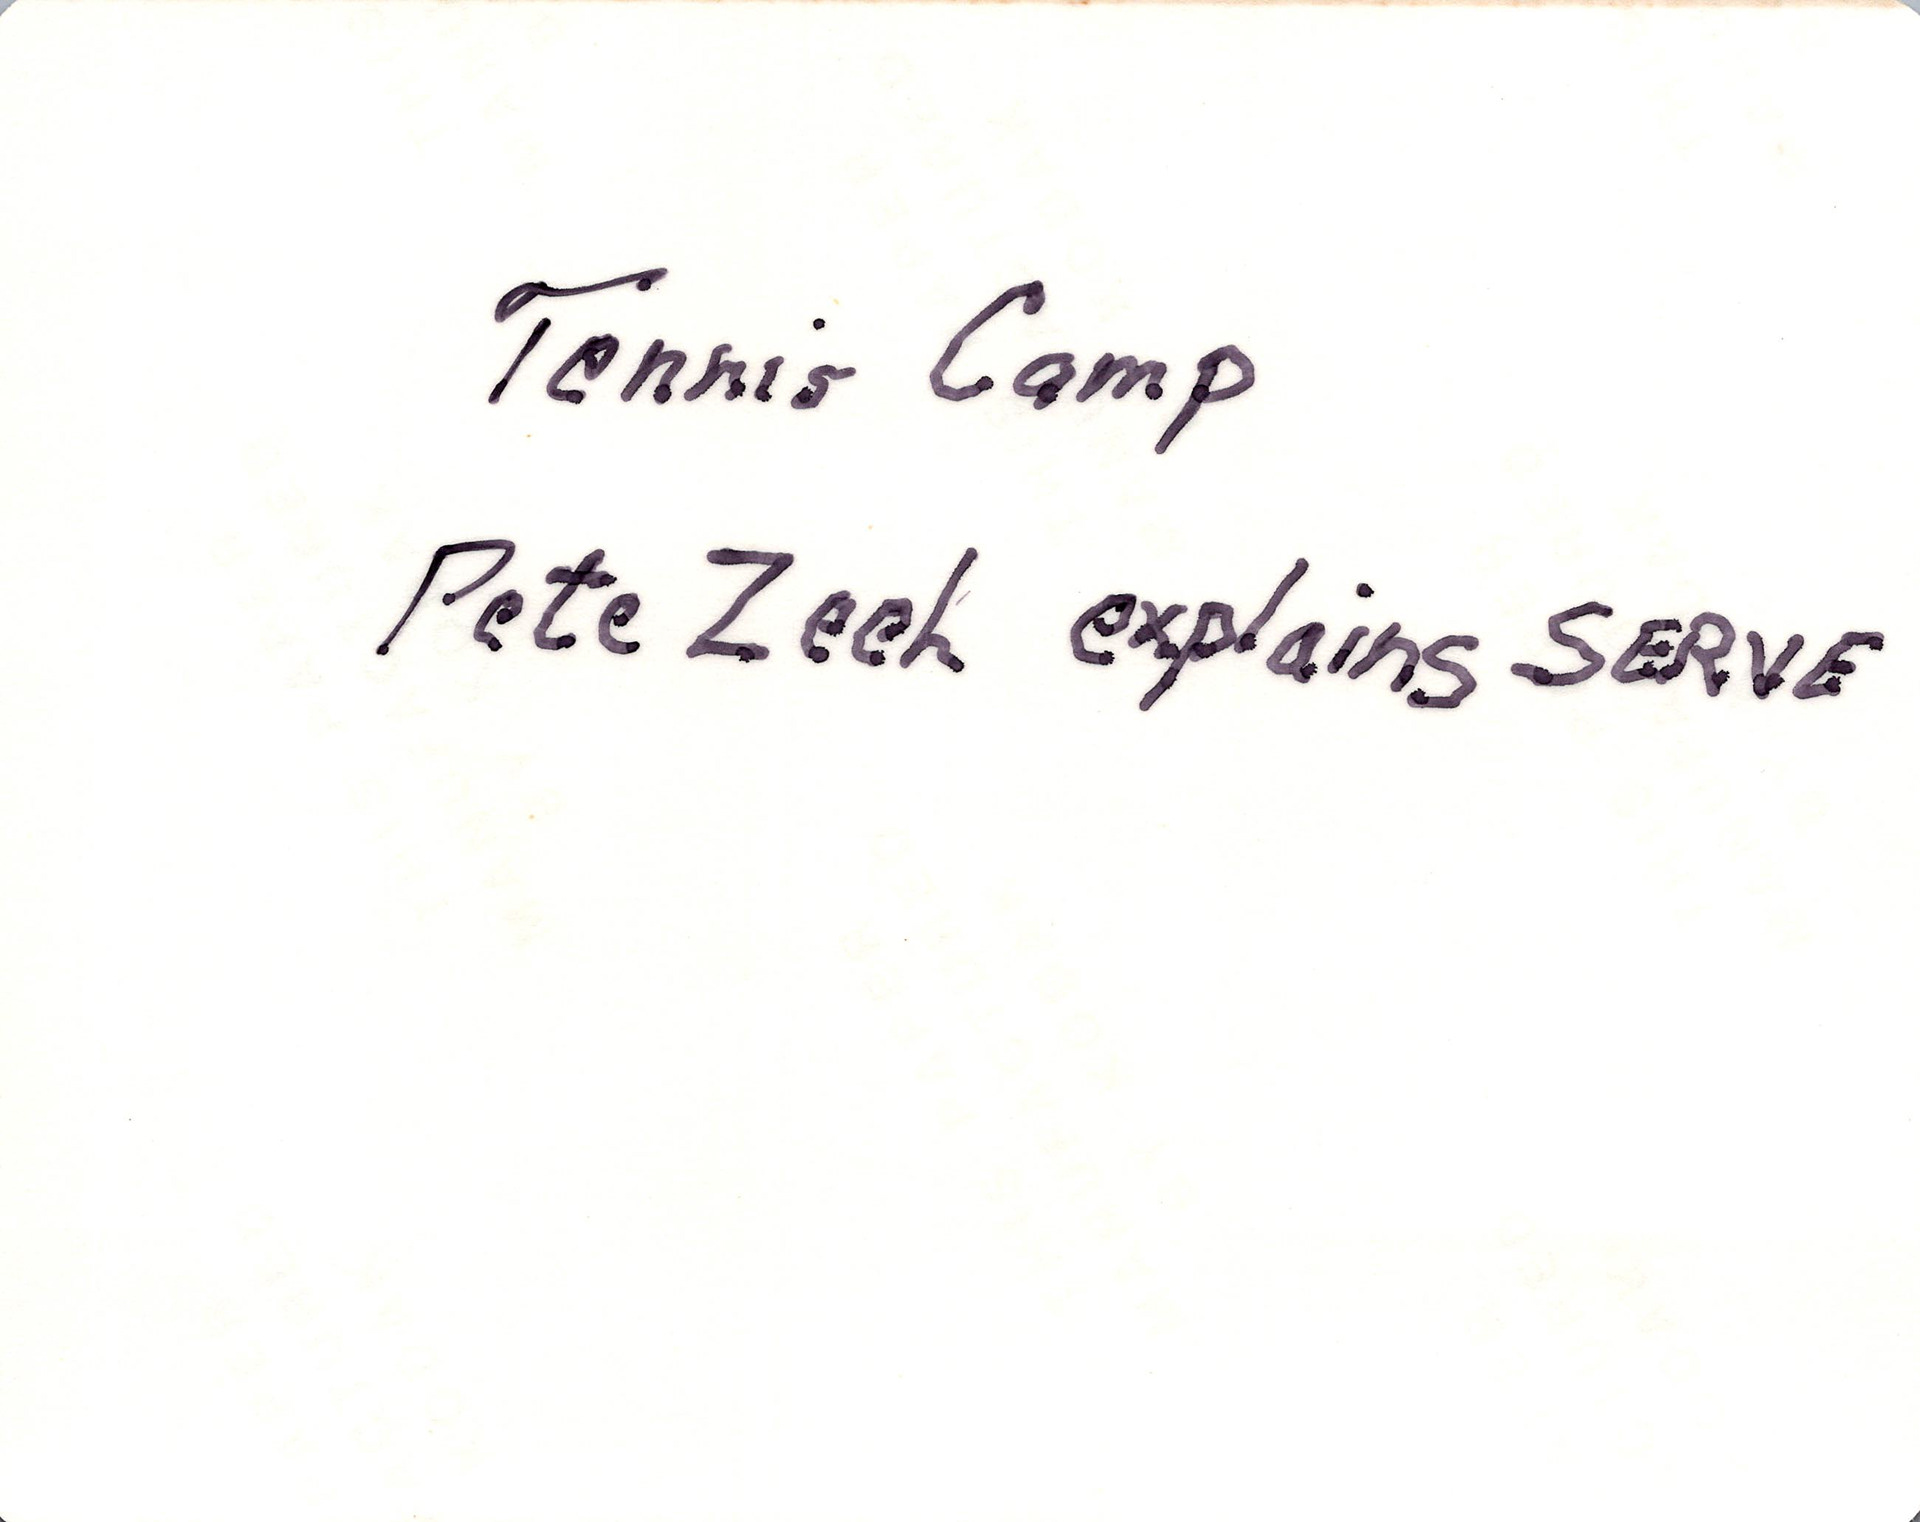 Tennis Camp
Pete Zeeh explains SERVE